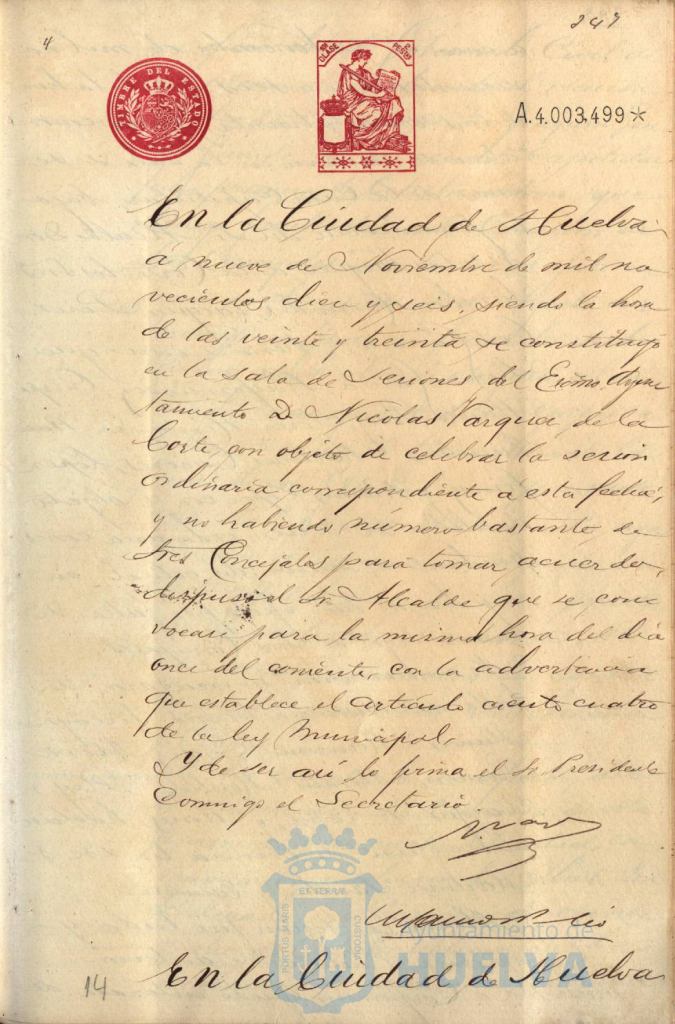 4
247
TIMBRE DEL ESTADO
CLASE
PESETAS
A.4.003.499*
En la Ciudad de Huelva
á nueve de Noviembre de mil no
vecientos diez y seis, siendo la hora
de las veinte y treinta se constituyó
en la sala de Sesiones del Excmo Ayun
tamiento D. Nicolas Vazquez de la
Corte, con objeto de celebrar la sesion
ordinaria correspondiente á esta fecha,
y no habiendo número bastante de
Sres Concejales para tomar acuerdo,
dispuso el Sr. Alcalde que se con
vocase para la misma hora del dia
once del corriente, con la advertencia
que establece el artículo ciento cuatro
de la ley Municipal.
Y de ser así lo firma el Sr Presidente
Conmigo el Secretario.
PORTUS MARIS
ET TERRAE
CUSTODIA
Ayuntamiento de
HUELVA
14
En la Ciudad de Huelva